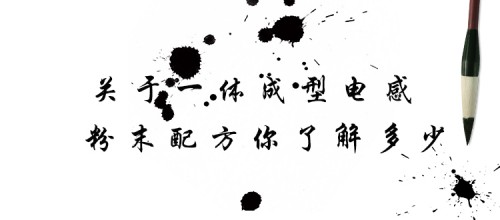 关于一体成型电感
粉末配方你了解多少